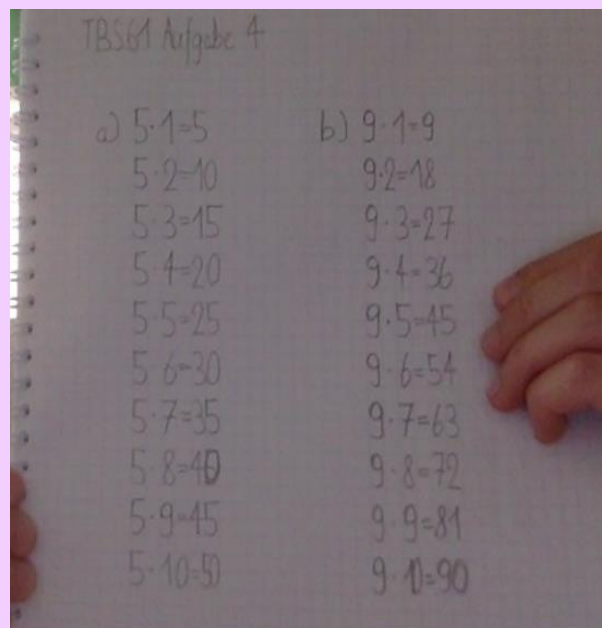 TBS61 Aufgabe 4
a) 5·1=5
5·2=10
5·3=15
5·4=20
5·5=25
5·6=30
5·7=35
5·8=40
5·9=45
5·10=50
b) 9·1=9
9·2=18
9·3=27
9·4=36
9·5=45
9·6=54
9·7=63
9·8=72
9·9=81
9·10=90